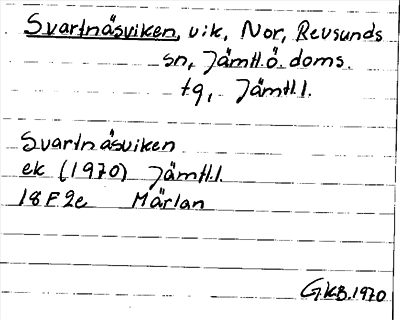 Svartnäsviken, vik, Nor, Revsunds
sn, Jämtl.ö. doms.
tg, Jämtl.l.
Svartnäsviken
ek (1970) Jämtl.l.
18F2e Märlan
GKB.1970